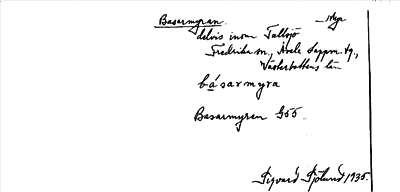 Basarmyran. – Mya
delvis inom Tallsjö
Fredrika sn., Åsele lappm. tg.,
Västerbottens län
básarmyra
Basarmyran G55
Sigvard Sjölund 1935.